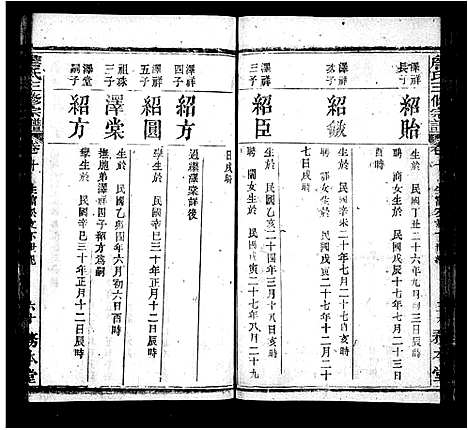 澤祥
長子
紹貽
生於　民國丁丑二十六年九月初三日
酉時
聘　商女生於　民國戊寅二十七年七月十二日
澤祥
次子
紹敏
生於　民國辛未二十年七月二十一日亥時
聘　鄒女生於　民國戊寅二十七年十二月二十
七日戌時
澤祥
三子
紹臣
生於　民國乙亥二十四年三月十八日亥時
聘　關女生於　民國戊寅二十七年八月二十九
日戌時
澤祥
四子
紹方
過繼澤棠詳後
澤祥
五子
紹圓
生於　民國乙亥四年六月初六日酉時
學生於　民國辛巳三十年正月十二日辰時
祖珠
三子
澤棠
撫胞弟澤祥四子紹方爲嗣
澤堂
嗣子
紹方
學生於　民國辛巳三十年正月十二日辰時
氏三修宗譜
卷十
六十
務本堂